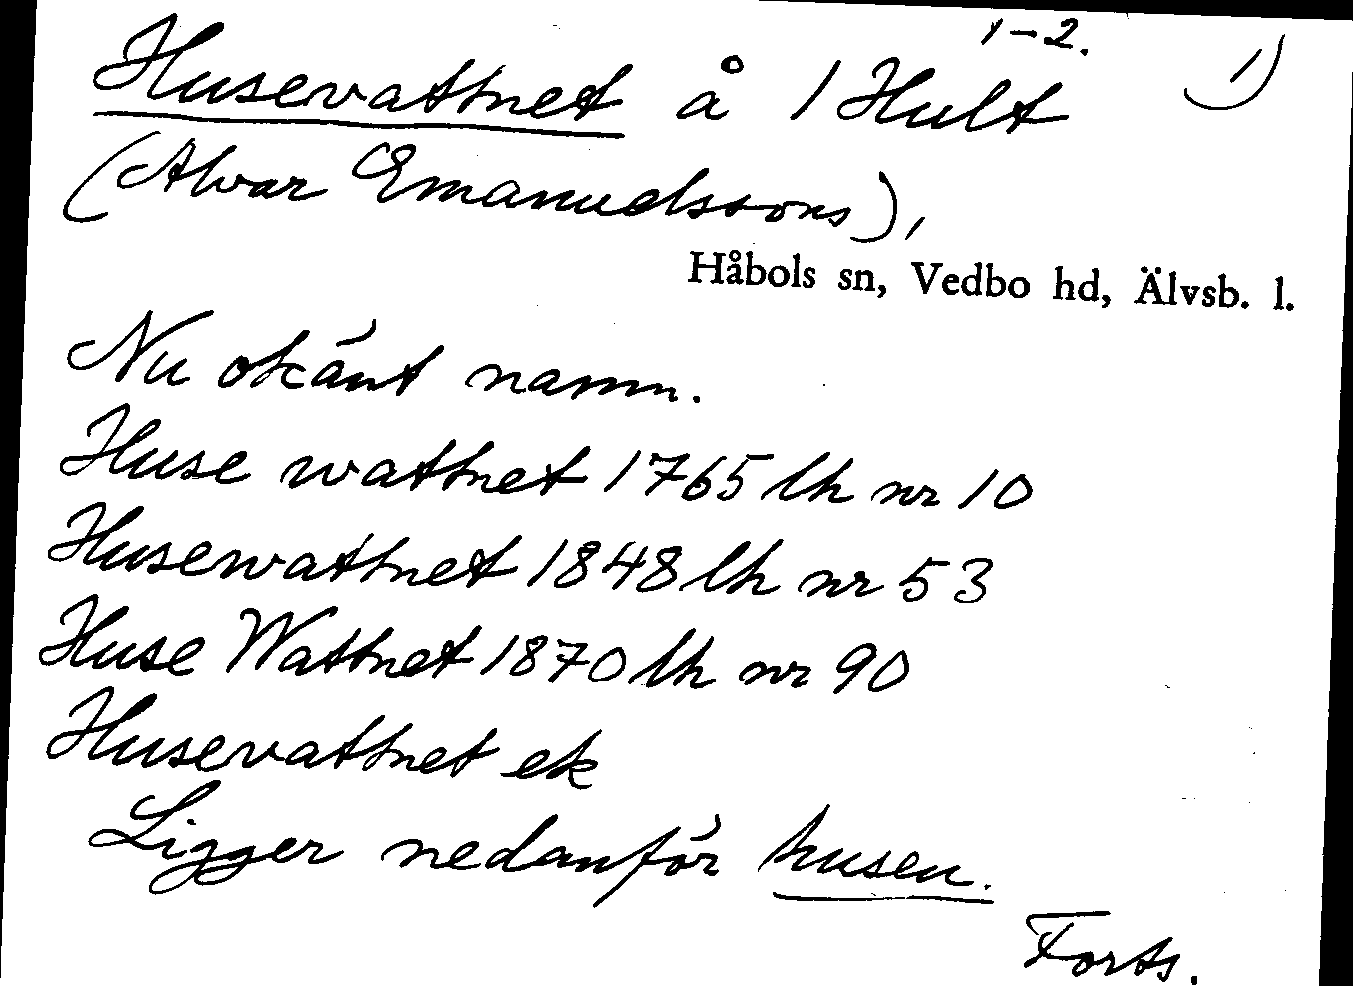 1-2.
1)
Husevattnet å 1 Hult
(Alvar Emanuelssons),
Håbols sn, Vedbo hd, Älvsb. l.
Nu okänt namn.
Huse wattnet 1765 lh nr 10
Husewattnet 1848 lh nr 53
Huse Wattnet 1870 lh nr 90
Husevattnet ek
Ligger nedanför husen.
Forts.